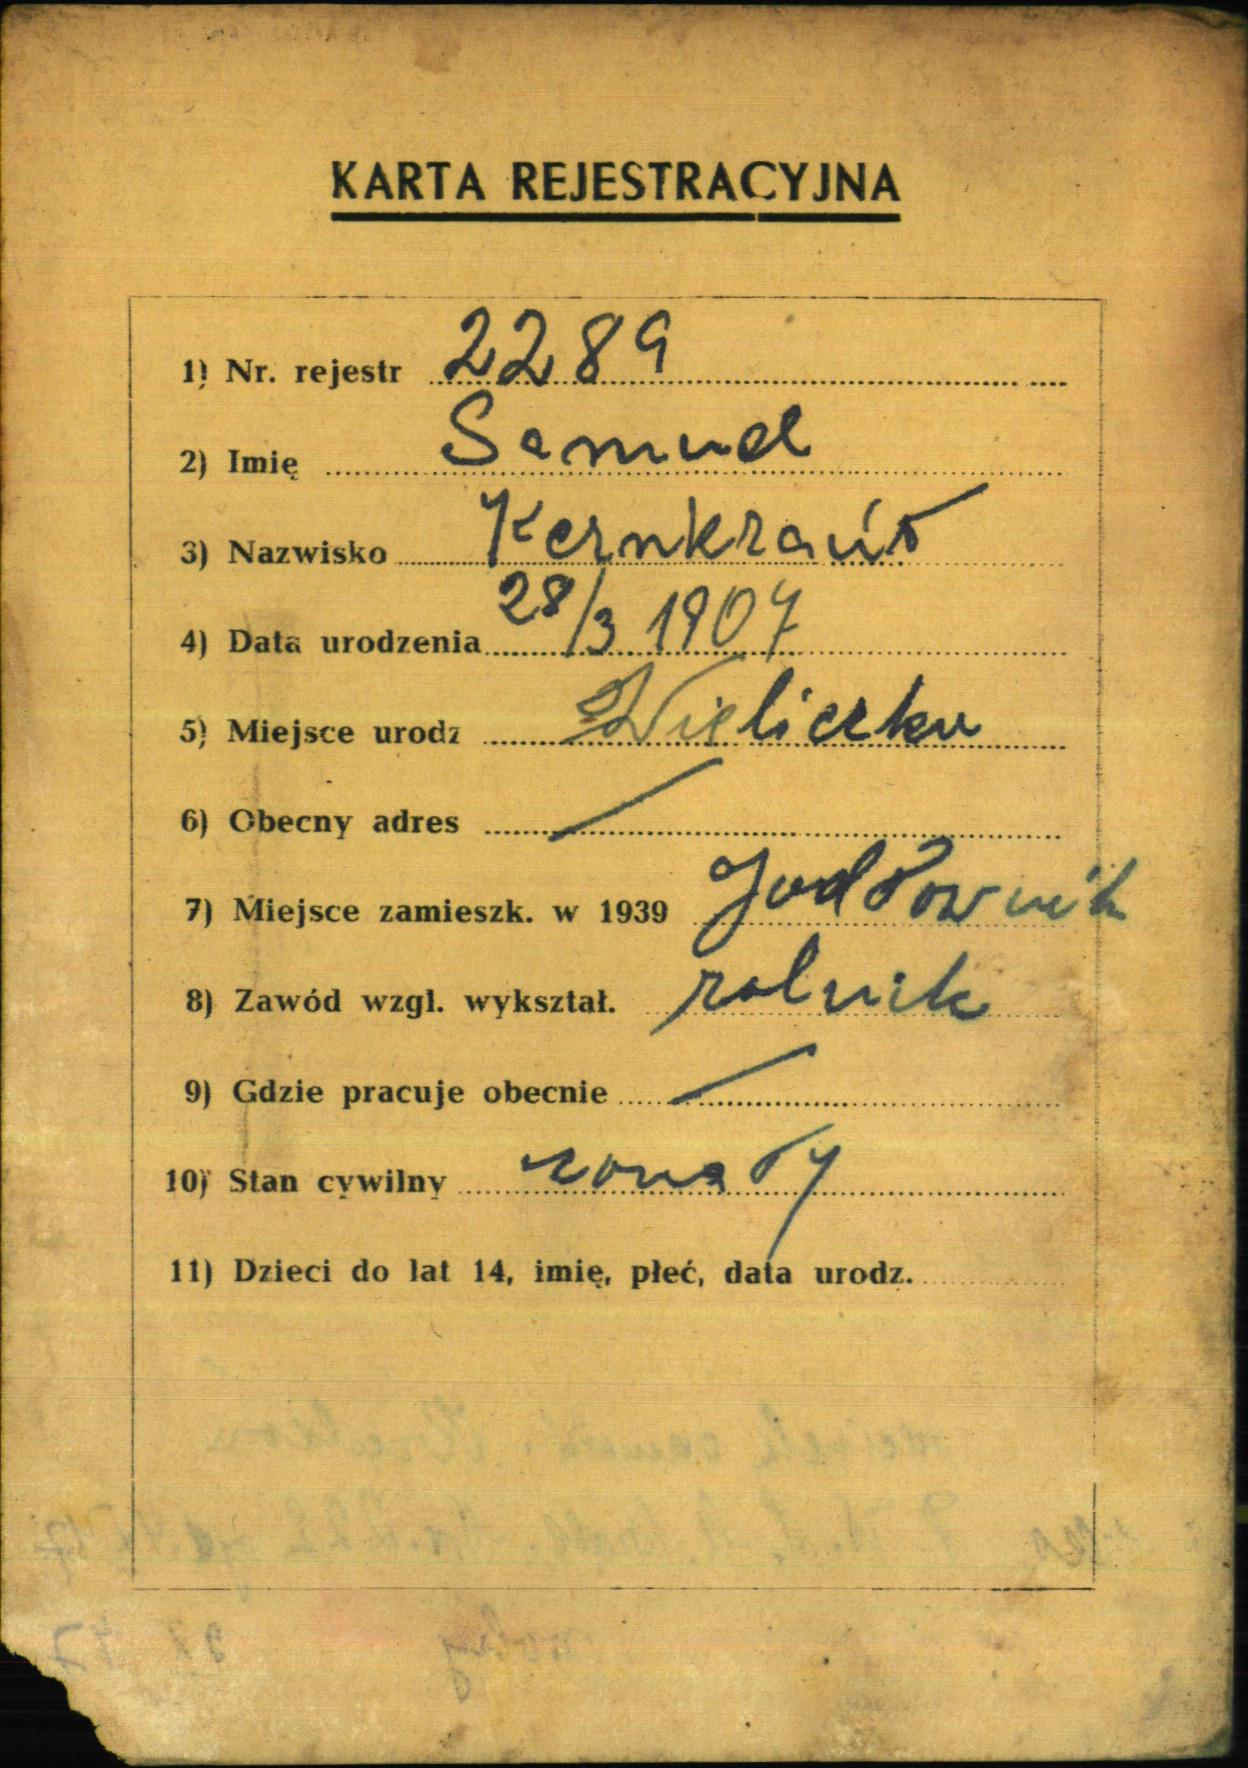 KARTA REJESTRACYJNA
1) Nr. rejestr 2289
2) Imię Samuel
3) Nazwisko Kernkraut
4) Data urodzenia 28/3 1907
5) Miejsce urodz Wieliczka
6) Obecny adres /
7) Miejsce zamieszk. w 1939 Jodłownik
8) Zawód wzgl. wykształ. rolnik
9) Gdzie pracuje obecnie /
10) Stan cywilny żonaty
11) Dzieci do lat 14, imię, płeć, data urodz.